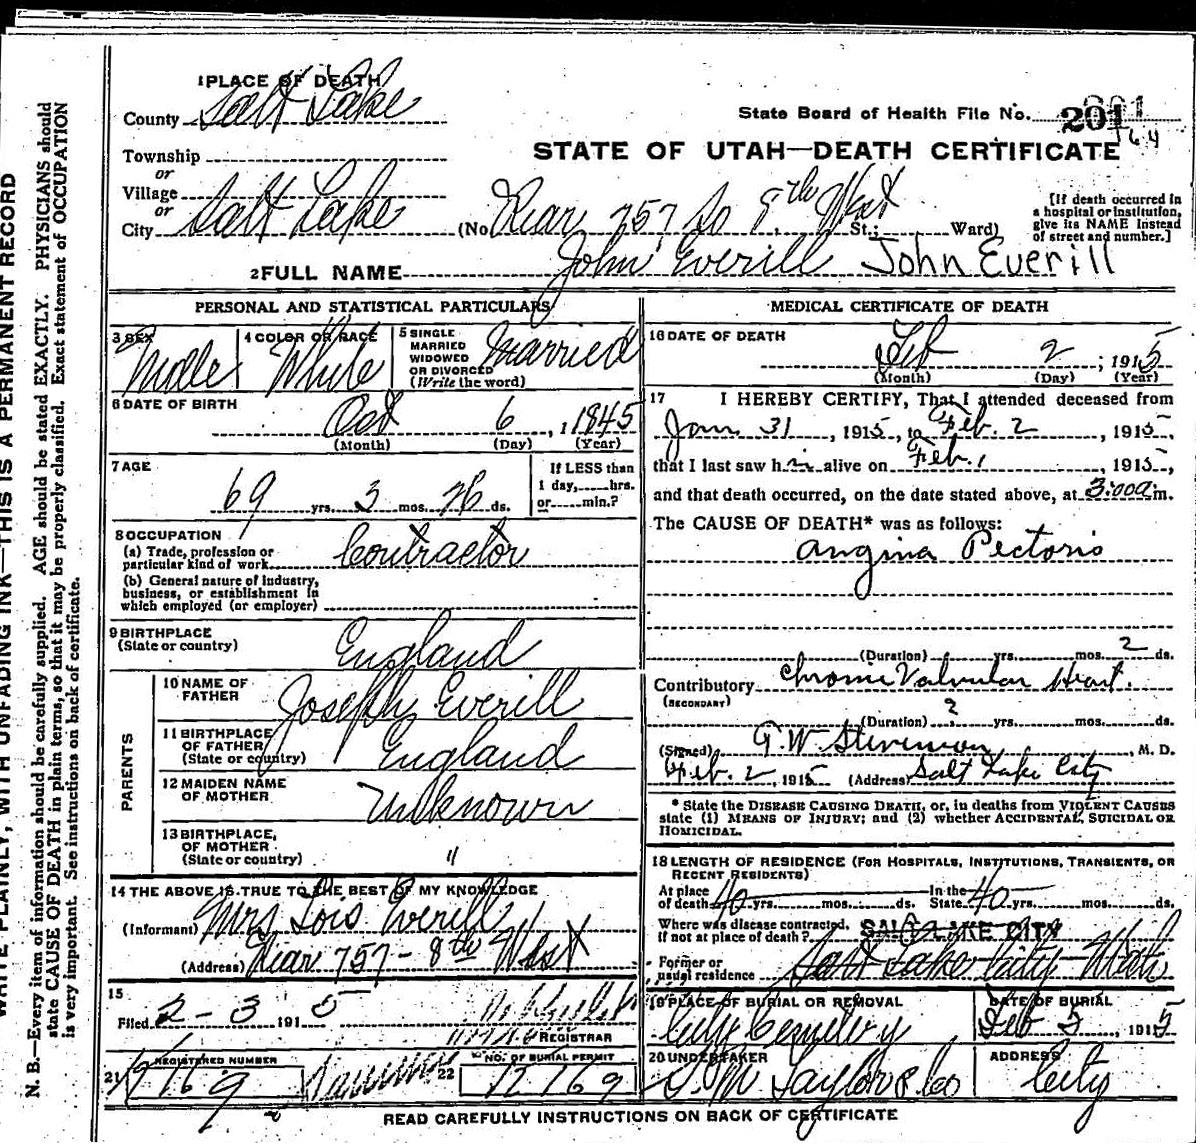 WRITE PLAINLY, WITH UNFADING INK—THIS IS A PERMANENT RECORD
N. B.—Every item of information should be carefully supplied. AGE should be stated EXACTLY. PHYSICIANS should
state CAUSE OF DEATH in plain terms, so that it may be properly classified. Exact statement of OCCUPATION
is very important. See instructions on back of certificate.
1 PLACE OF DEATH
County Salt Lake
State Board of Health File No. 201
STATE OF UTAH—DEATH CERTIFICATE
Township
or
Village
or
City Salt Lake (No Rear 757 So 8th West St.; Ward)
[If death occurred in
a hospital or institution,
give its NAME instead
of street and number.]
2 FULL NAME John Everill John Everill
PERSONAL AND STATISTICAL PARTICULARS
3 SEX Male
4 COLOR OR RACE White
5 SINGLE
MARRIED
WIDOWED
OR DIVORCED
(Write the word) Married
6 DATE OF BIRTH
Oct 6, 1845
(Month) (Day) (Year)
7 AGE
69 yrs. 3 mos. 26 ds.
If LESS than
1 day, hrs.
or min.?
8 OCCUPATION
(a) Trade, profession or
particular kind of work Contractor
(b) General nature of industry,
business, or establishment in
which employed (or employer)
9 BIRTHPLACE
(State or country) England
PARENTS
10 NAME OF
FATHER Joseph Everill
11 BIRTHPLACE
OF FATHER
(State or country) England
12 MAIDEN NAME
OF MOTHER Unknown
13 BIRTHPLACE,
OF MOTHER
(State or country) "
14 THE ABOVE IS TRUE TO THE BEST OF MY KNOWLEDGE
(Informant) Mrs Lois Everill
(Address) Rear 757 - 8th West
15
Filed 2-3 1915
REGISTRAR
21 REGISTERED NUMBER
22 NO. OF BURIAL PERMIT
12169
MEDICAL CERTIFICATE OF DEATH
16 DATE OF DEATH
Feb 2; 1915
(Month) (Day) (Year)
17 I HEREBY CERTIFY, That I attended deceased from
Jan. 31, 1915, to Feb. 2, 1915,
that I last saw him alive on Feb. 1, 1915,
and that death occurred, on the date stated above, at 3:00 a m.
The CAUSE OF DEATH* was as follows:
Angina Pectoris
(Duration) yrs. mos. 2 ds.
Contributory Chronic Valvular Heart.
(SECONDARY)
(Duration) ? yrs. mos. ds.
(Signed) G. W. Stevenson, M. D.
Feb. 2, 1915 (Address) Salt Lake City
* State the DISEASE CAUSING DEATH, or, in deaths from VIOLENT CAUSES
state (1) MEANS OF INJURY; and (2) whether ACCIDENTAL, SUICIDAL OR
HOMICIDAL.
18 LENGTH OF RESIDENCE (FOR HOSPITALS, INSTITUTIONS, TRANSIENTS, OR
RECENT RESIDENTS)
At place
of death 40 yrs. mos. ds. In the
State 40 yrs. mos. ds.
Where was disease contracted,
if not at place of death? SALT LAKE CITY
Former or
usual residence Salt Lake City Utah
19 PLACE OF BURIAL OR REMOVAL
City Cemetery
DATE OF BURIAL
Feb 5, 1915
20 UNDERTAKER
S. M. Taylor & Co
ADDRESS
City
READ CAREFULLY INSTRUCTIONS ON BACK OF CERTIFICATE